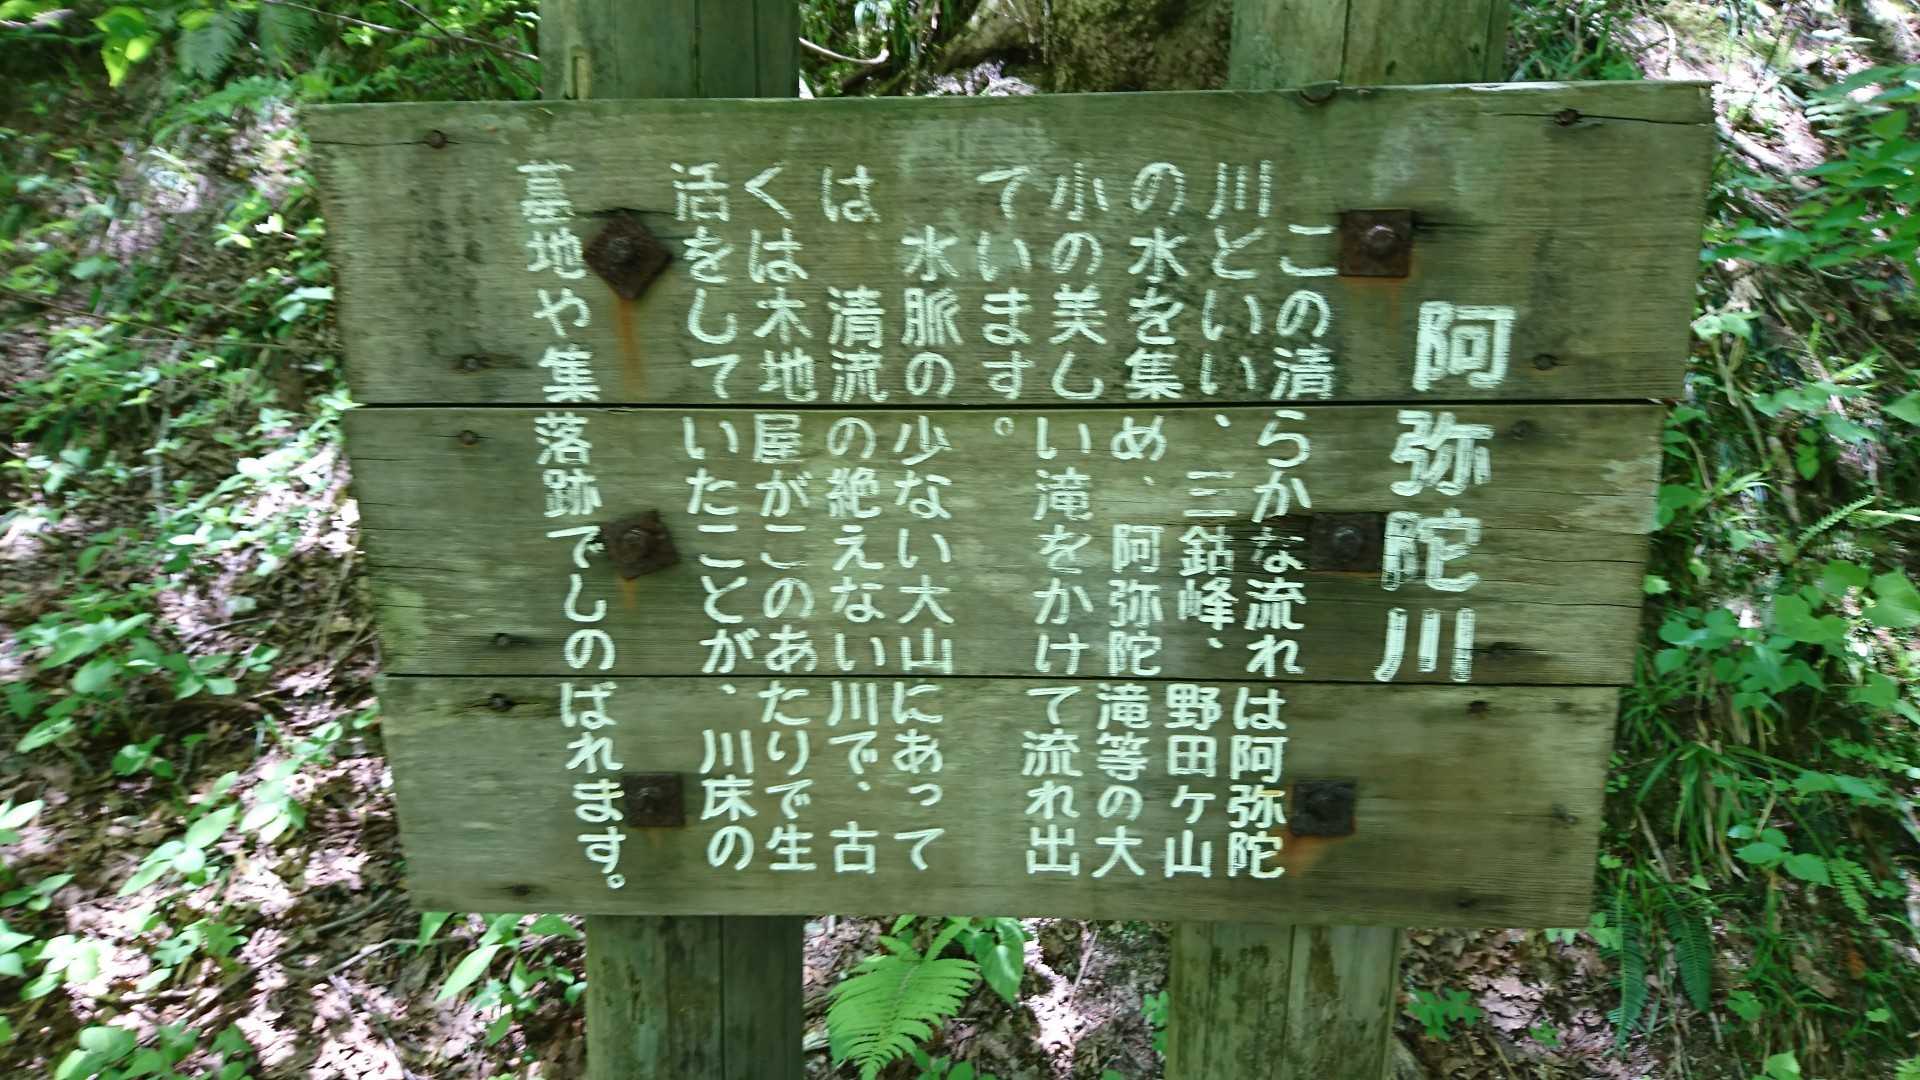 阿弥陀川
この清らかな流れは阿弥陀
川といい、三鈷峰、野田ヶ山
の水を集め、阿弥陀滝等の大
小の美しい滝をかけて流れ出
ています。
水脈の少ない大山にあって
は清流の絶えない川で、古
くは木地屋がこのあたりで生
活をしていたことが、川床の
墓地や集落跡でしのばれます。